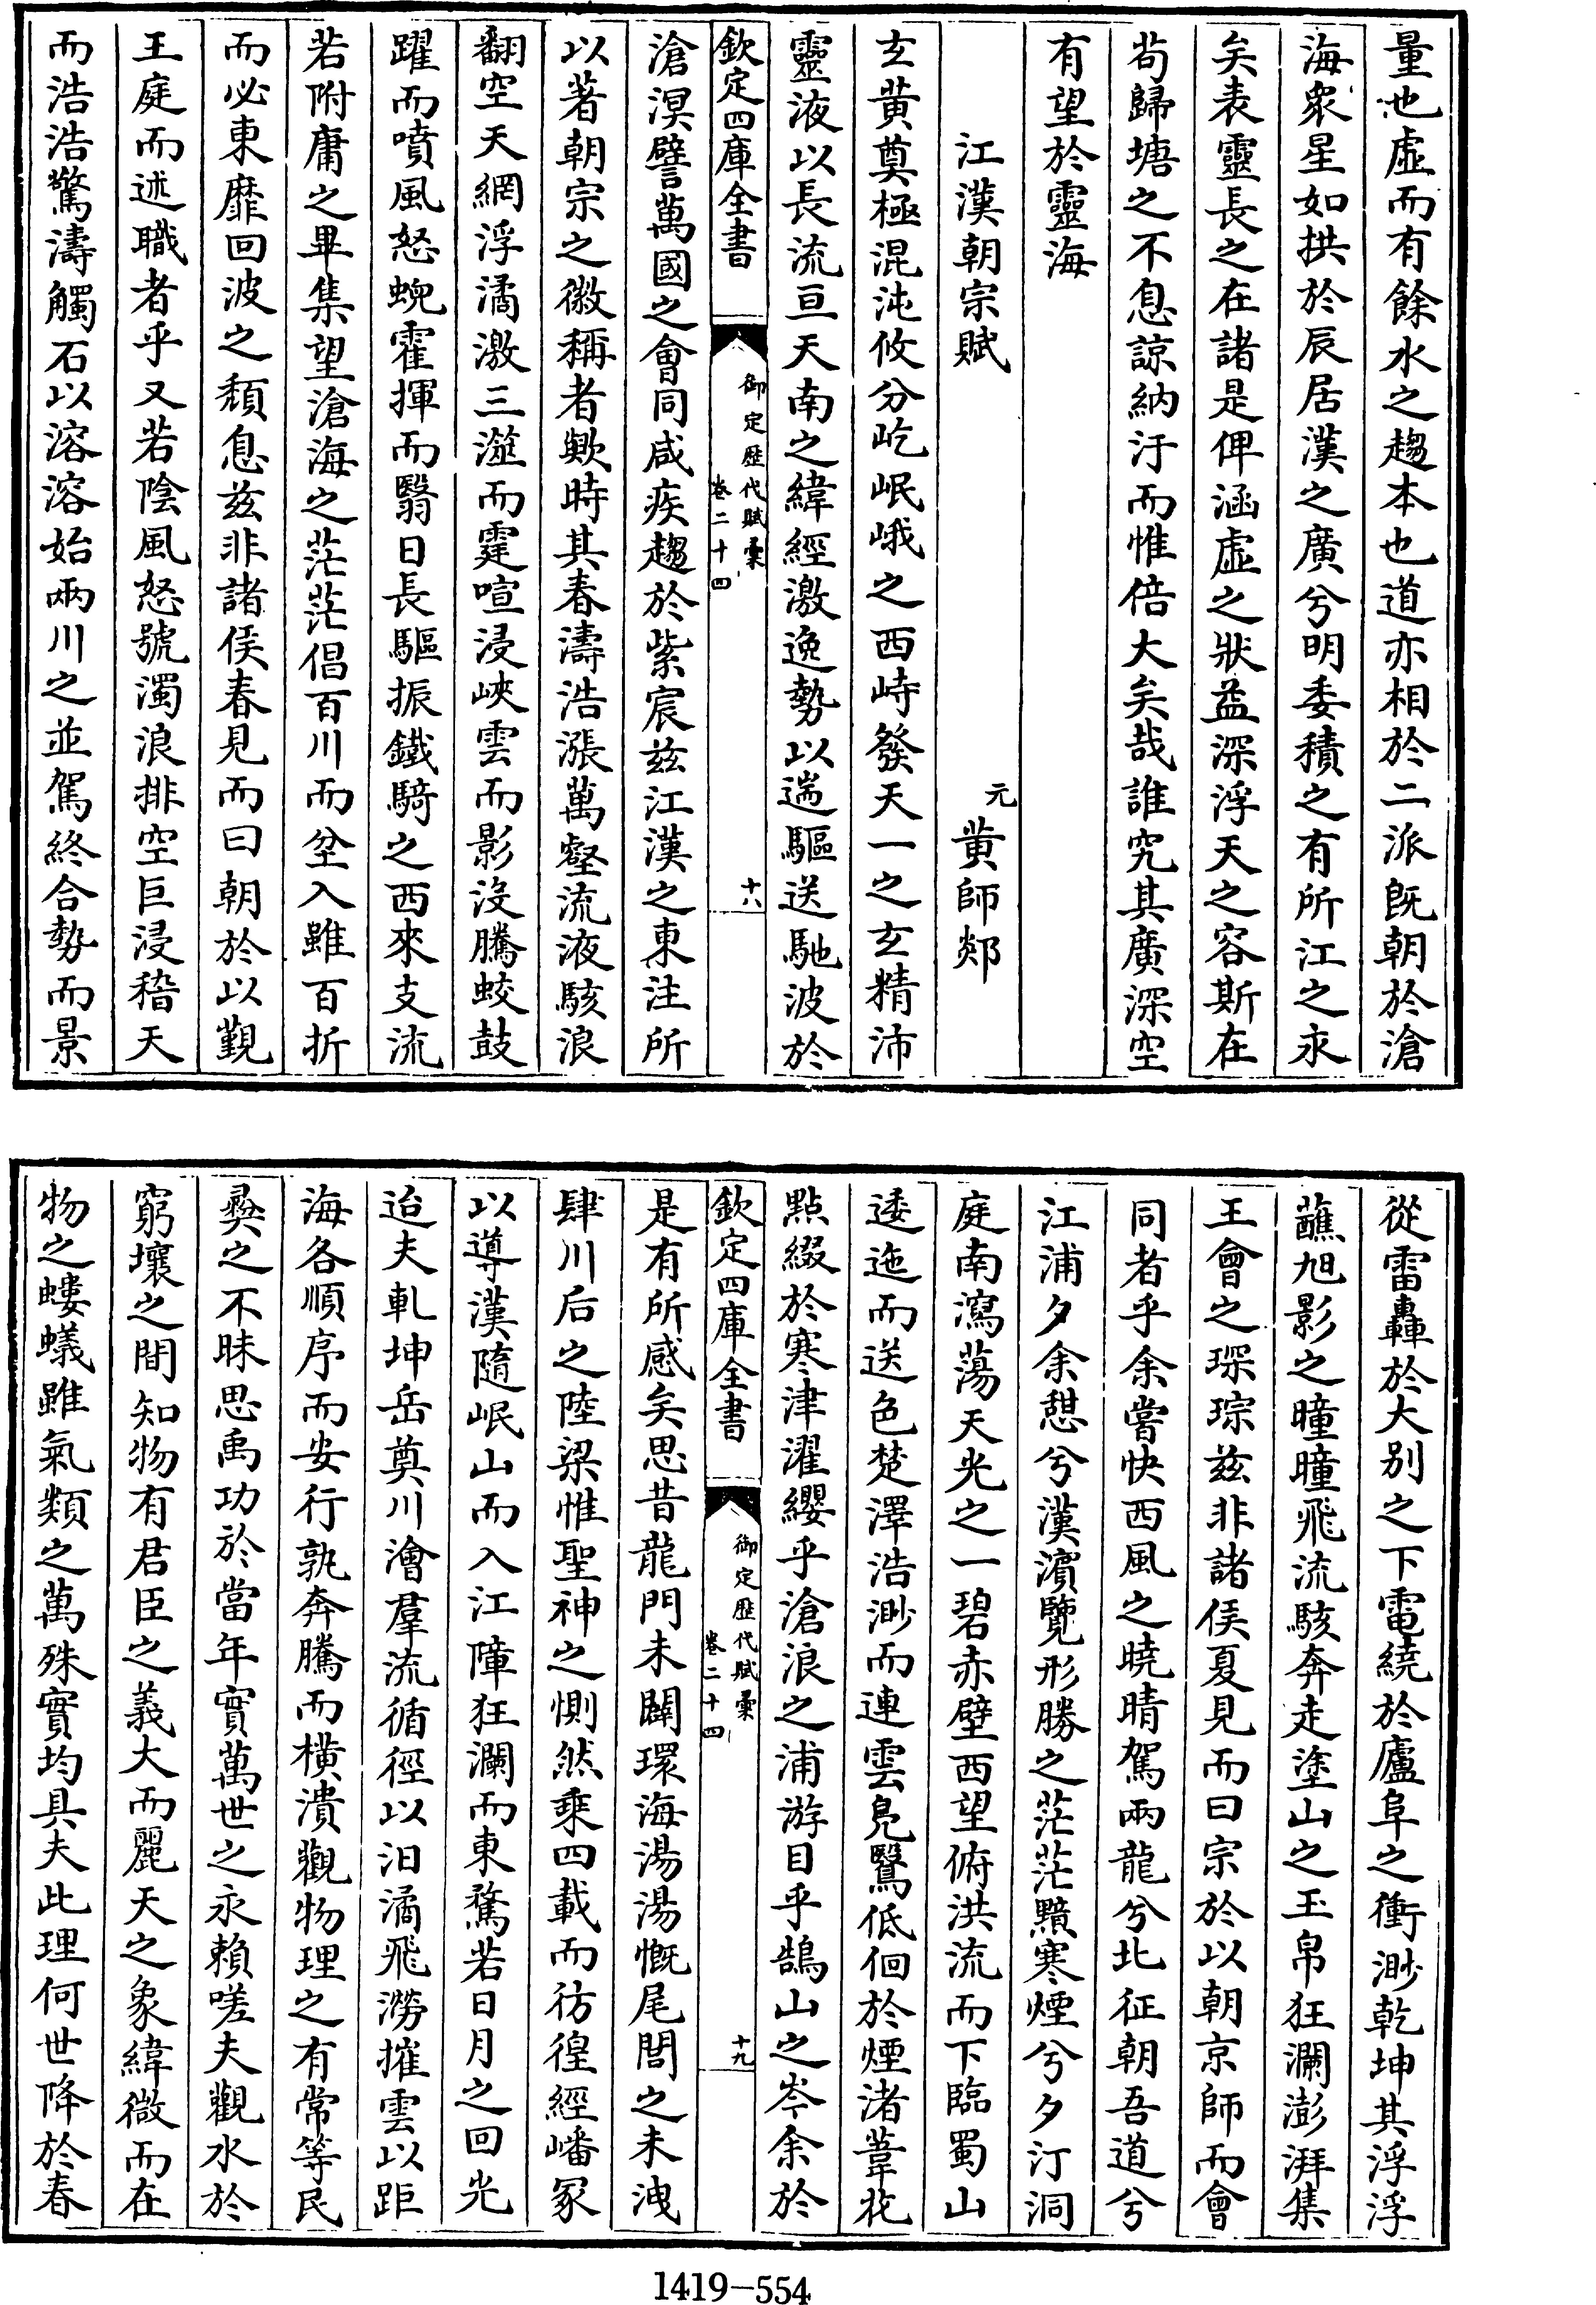 量也虛而有餘水之趨本也道亦相於二派旣朝於滄
海衆星如拱於辰居漢之廣兮明委積之有所江之永
矣表靈長之在諸是俾涵虛之狀益深浮天之容斯在
茍歸塘之不息諒納汙而惟倍大矣哉誰究其廣深空
有望於靈海
江漢朝宗賦
元黄師郯
玄黄奠極混沌攸分屹岷峨之西峙發天一之玄精沛
靈液以長流亘天南之緯經激逸勢以遄驅送馳波於
欽定四庫全書
御定歴代賦彙
卷二十四
十八
滄溟譬萬國之會同咸疾趨於紫宸兹江漢之東注所
以著朝宗之徽稱者歟時其春濤浩漲萬壑流液駭浪
翻空天網浮潏激三澨而霆喧浸峽雲而影没騰蛟鼓
躍而噴風怒蜺霍揮而翳日長驅振鐵騎之西來支流
若附庸之畢集望滄海之茫茫倡百川而坌入雖百折
而必東靡回波之頽息兹非諸侯春見而曰朝於以覲
王庭而述職者乎又若陰風怒號濁浪排空巨浸稽天
而浩浩驚濤觸石以溶溶始兩川之並駕終合勢而景
從雷轟於大别之下電繞於廬阜之衝渺乾坤其浮浮
蘸旭影之曈曈飛流駭奔走塗山之玉帛狂瀾澎湃集
王會之琛琮兹非諸侯夏見而曰宗於以朝京師而會
同者乎余嘗快西風之曉晴駕兩龍兮北征朝吾道兮
江浦夕余憇兮漢濵覽形勝之茫茫黯寒煙兮夕汀洞
庭南瀉蕩天光之一碧赤壁西望俯洪流而下臨蜀山
逶迤而送色楚澤浩渺而連雲鳧鷖低佪於煙渚葦花
點綴於寒津濯纓乎滄浪之浦游目乎鵠山之岑余於
欽定四庫全書
御定歴代賦彙
卷二十四
十九
是有所感矣思昔龍門未闢環海湯湯慨尾閭之未洩
肆川后之陸梁惟聖神之惻然乗四載而彷徨經嶓冢
以導漢隨岷山而入江障狂瀾而東騖若日月之回光
迨夫軋坤岳奠川澮羣流循徑以汨潏飛澇摧雲以距
海各順序而安行孰奔騰而横潰觀物理之有常等民
彜之不昧思禹功於當年實萬世之永賴嗟夫觀水於
窮壤之間知物有君臣之義大而麗天之象緯微而在
物之螻蟻雖氣類之萬殊實均具夫此理何世降於春
1419-554